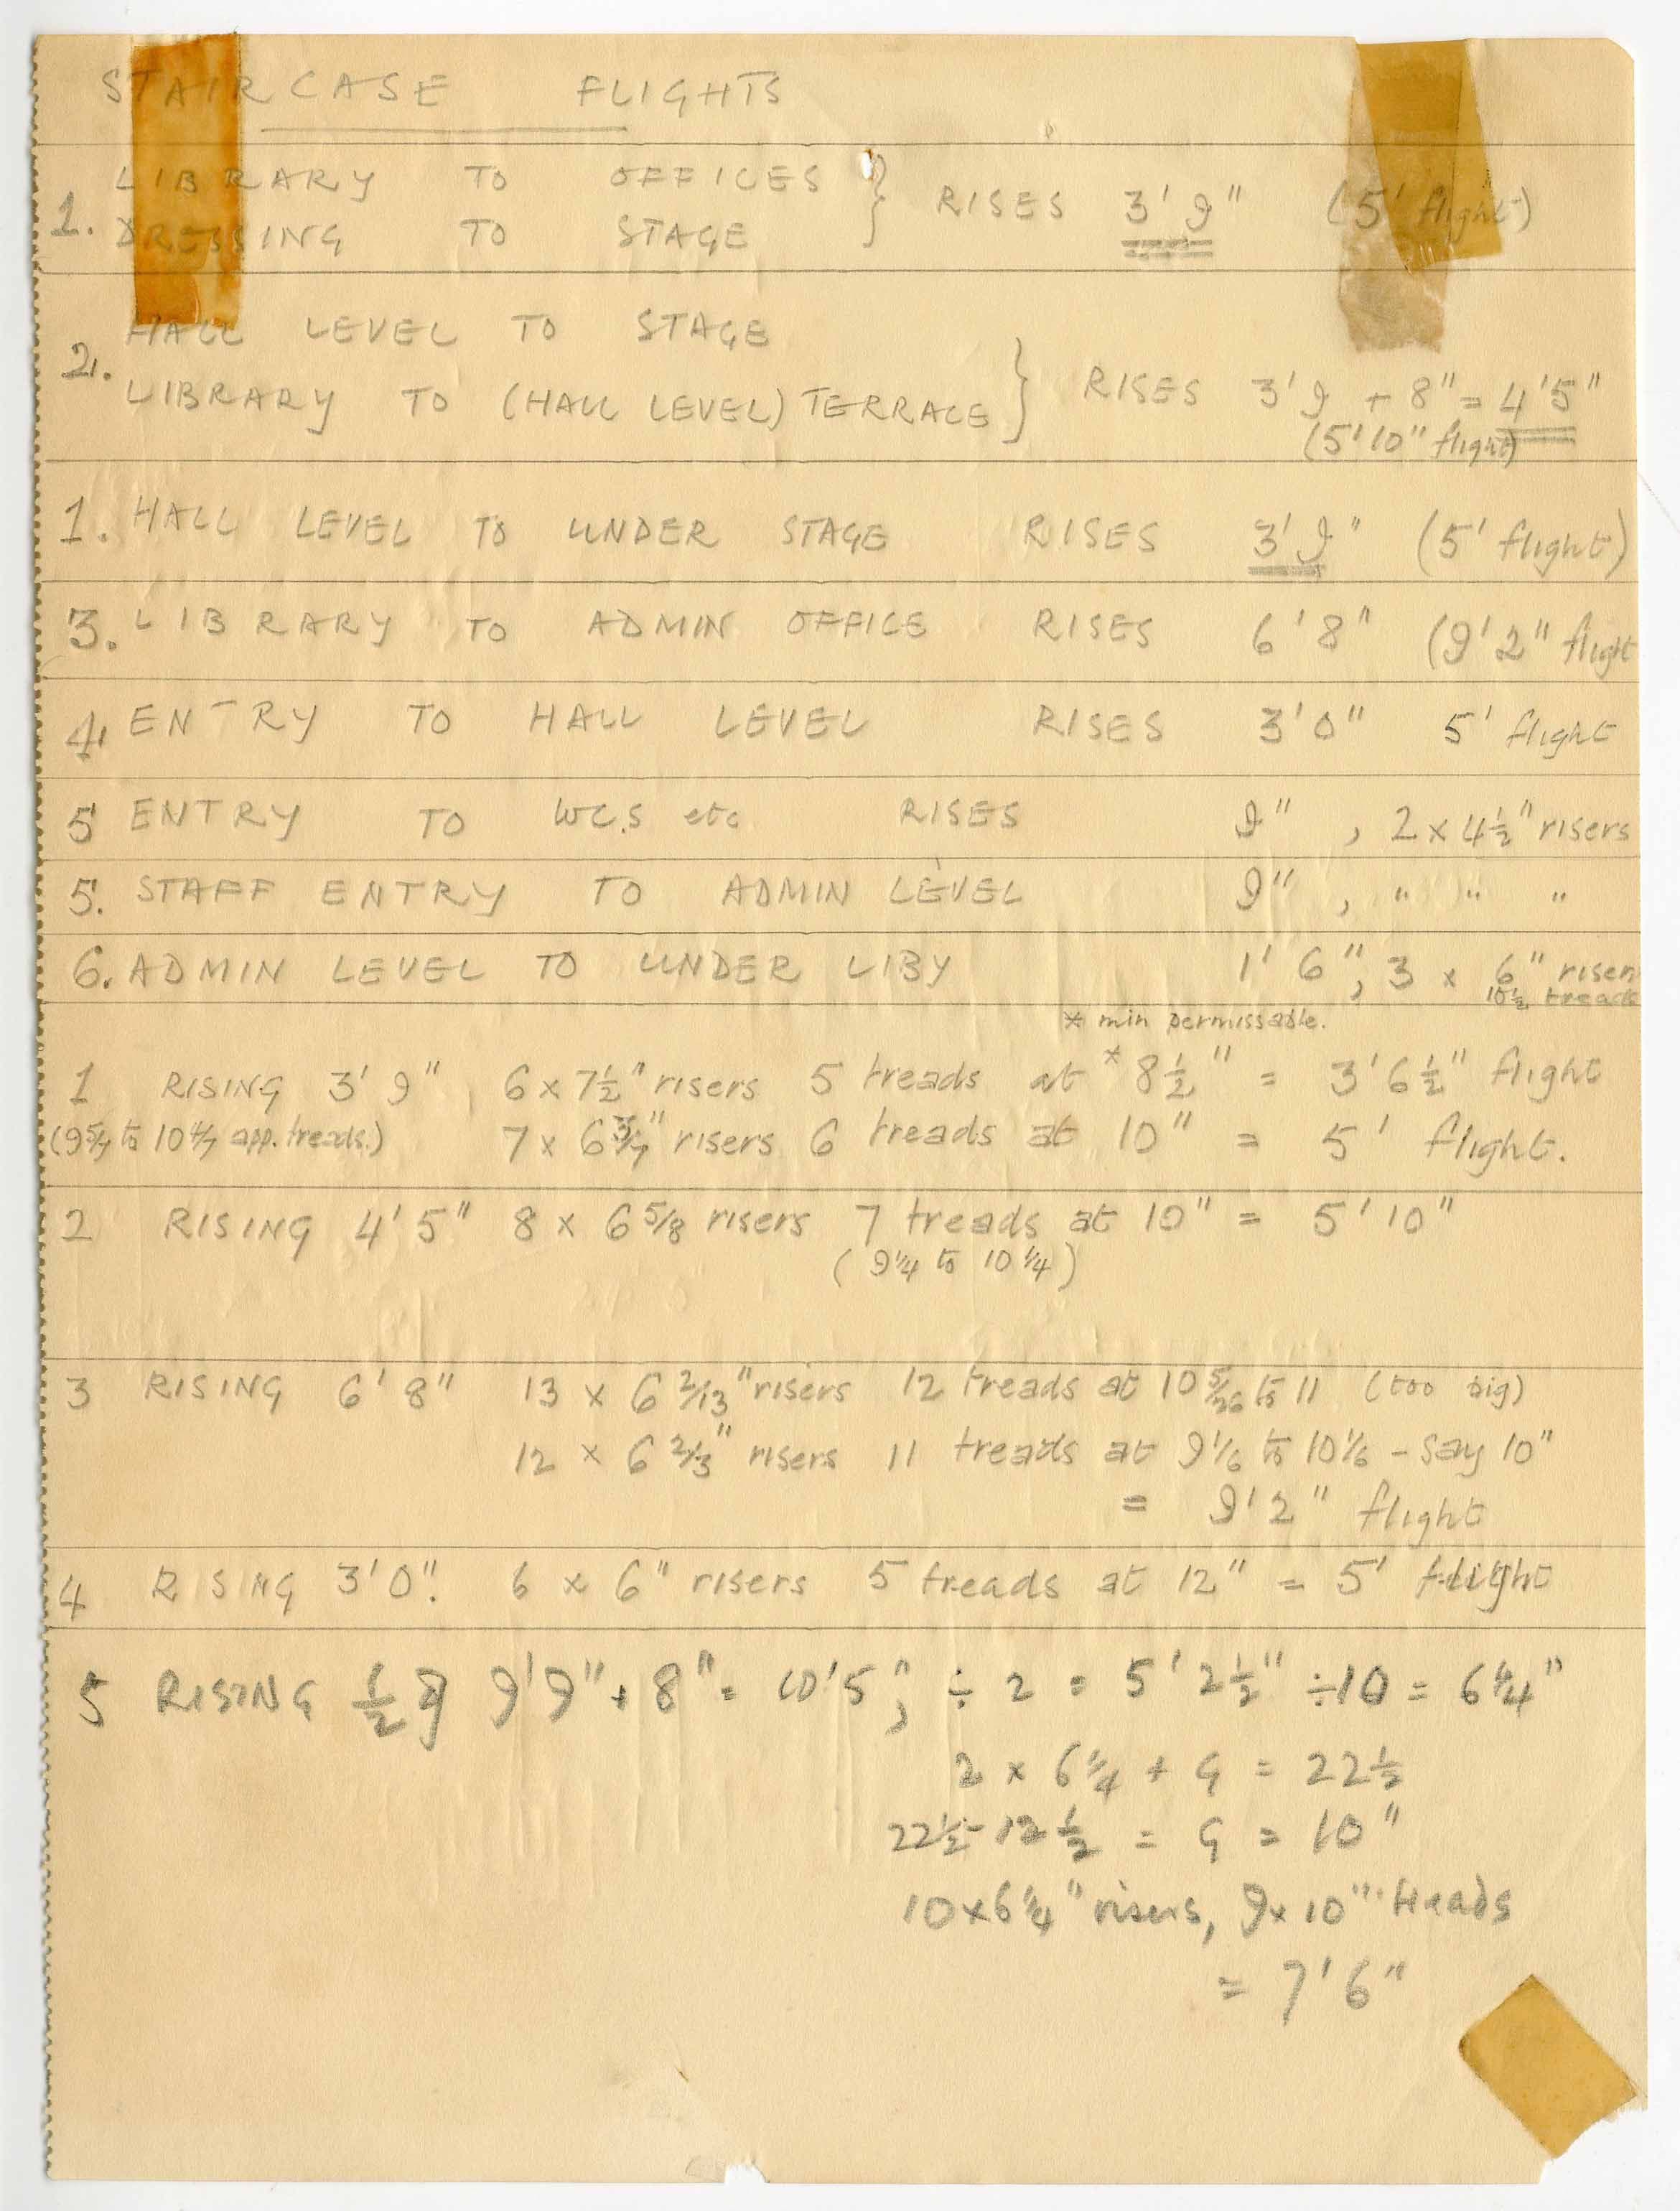 STAIRCASE FLIGHTS
1. LIBRARY TO OFFICES } RISES 3'9" (5' flight)
DRESSING TO STAGE
2. HALL LEVEL TO STAGE
LIBRARY TO (HALL LEVEL) TERRACE } RISES 3'9 + 8" = 4'5"
(5'10" flight)
1. HALL LEVEL TO UNDER STAGE RISES 3'9" (5' flight)
3. LIBRARY TO ADMIN OFFICE RISES 6'8" (9'2" flight
4. ENTRY TO HALL LEVEL RISES 3'0" 5' flight
5 ENTRY TO WC.S etc RISES 9", 2 x 4½" risers
5. STAFF ENTRY TO ADMIN LEVEL 9", " " "
6. ADMIN LEVEL TO UNDER LIBY 1'6", 3 x 6" risers
10½ treads
* min permissable.
1 RISING 3'9", 6 x 7½" risers 5 treads at *8½" = 3'6½" flight
(9 5/7 to 10 4/7 app. treads.) 7 x 6 3/7" risers 6 treads at 10" = 5' flight.
2 RISING 4'5" 8 x 6 5/8 risers 7 treads at 10" = 5'10"
(9¼ to 10¼)
3 RISING 6'8" 13 x 6 2/13" risers 12 treads at 10 5/26 to 11 (too big)
12 x 6 2/3" risers 11 treads at 9 1/6 to 10 1/6 - say 10"
= 9'2" flight
4 RISING 3'0". 6 x 6" risers 5 treads at 12" = 5' flight
5 RISING ½ of 9'9" + 8" = 10'5", ÷ 2 = 5'2½" ÷ 10 = 6¼"
2 x 6¼ + G = 22½
22½ - 12½ = G = 10"
10 x 6¼" risers, 9 x 10" treads
= 7'6"